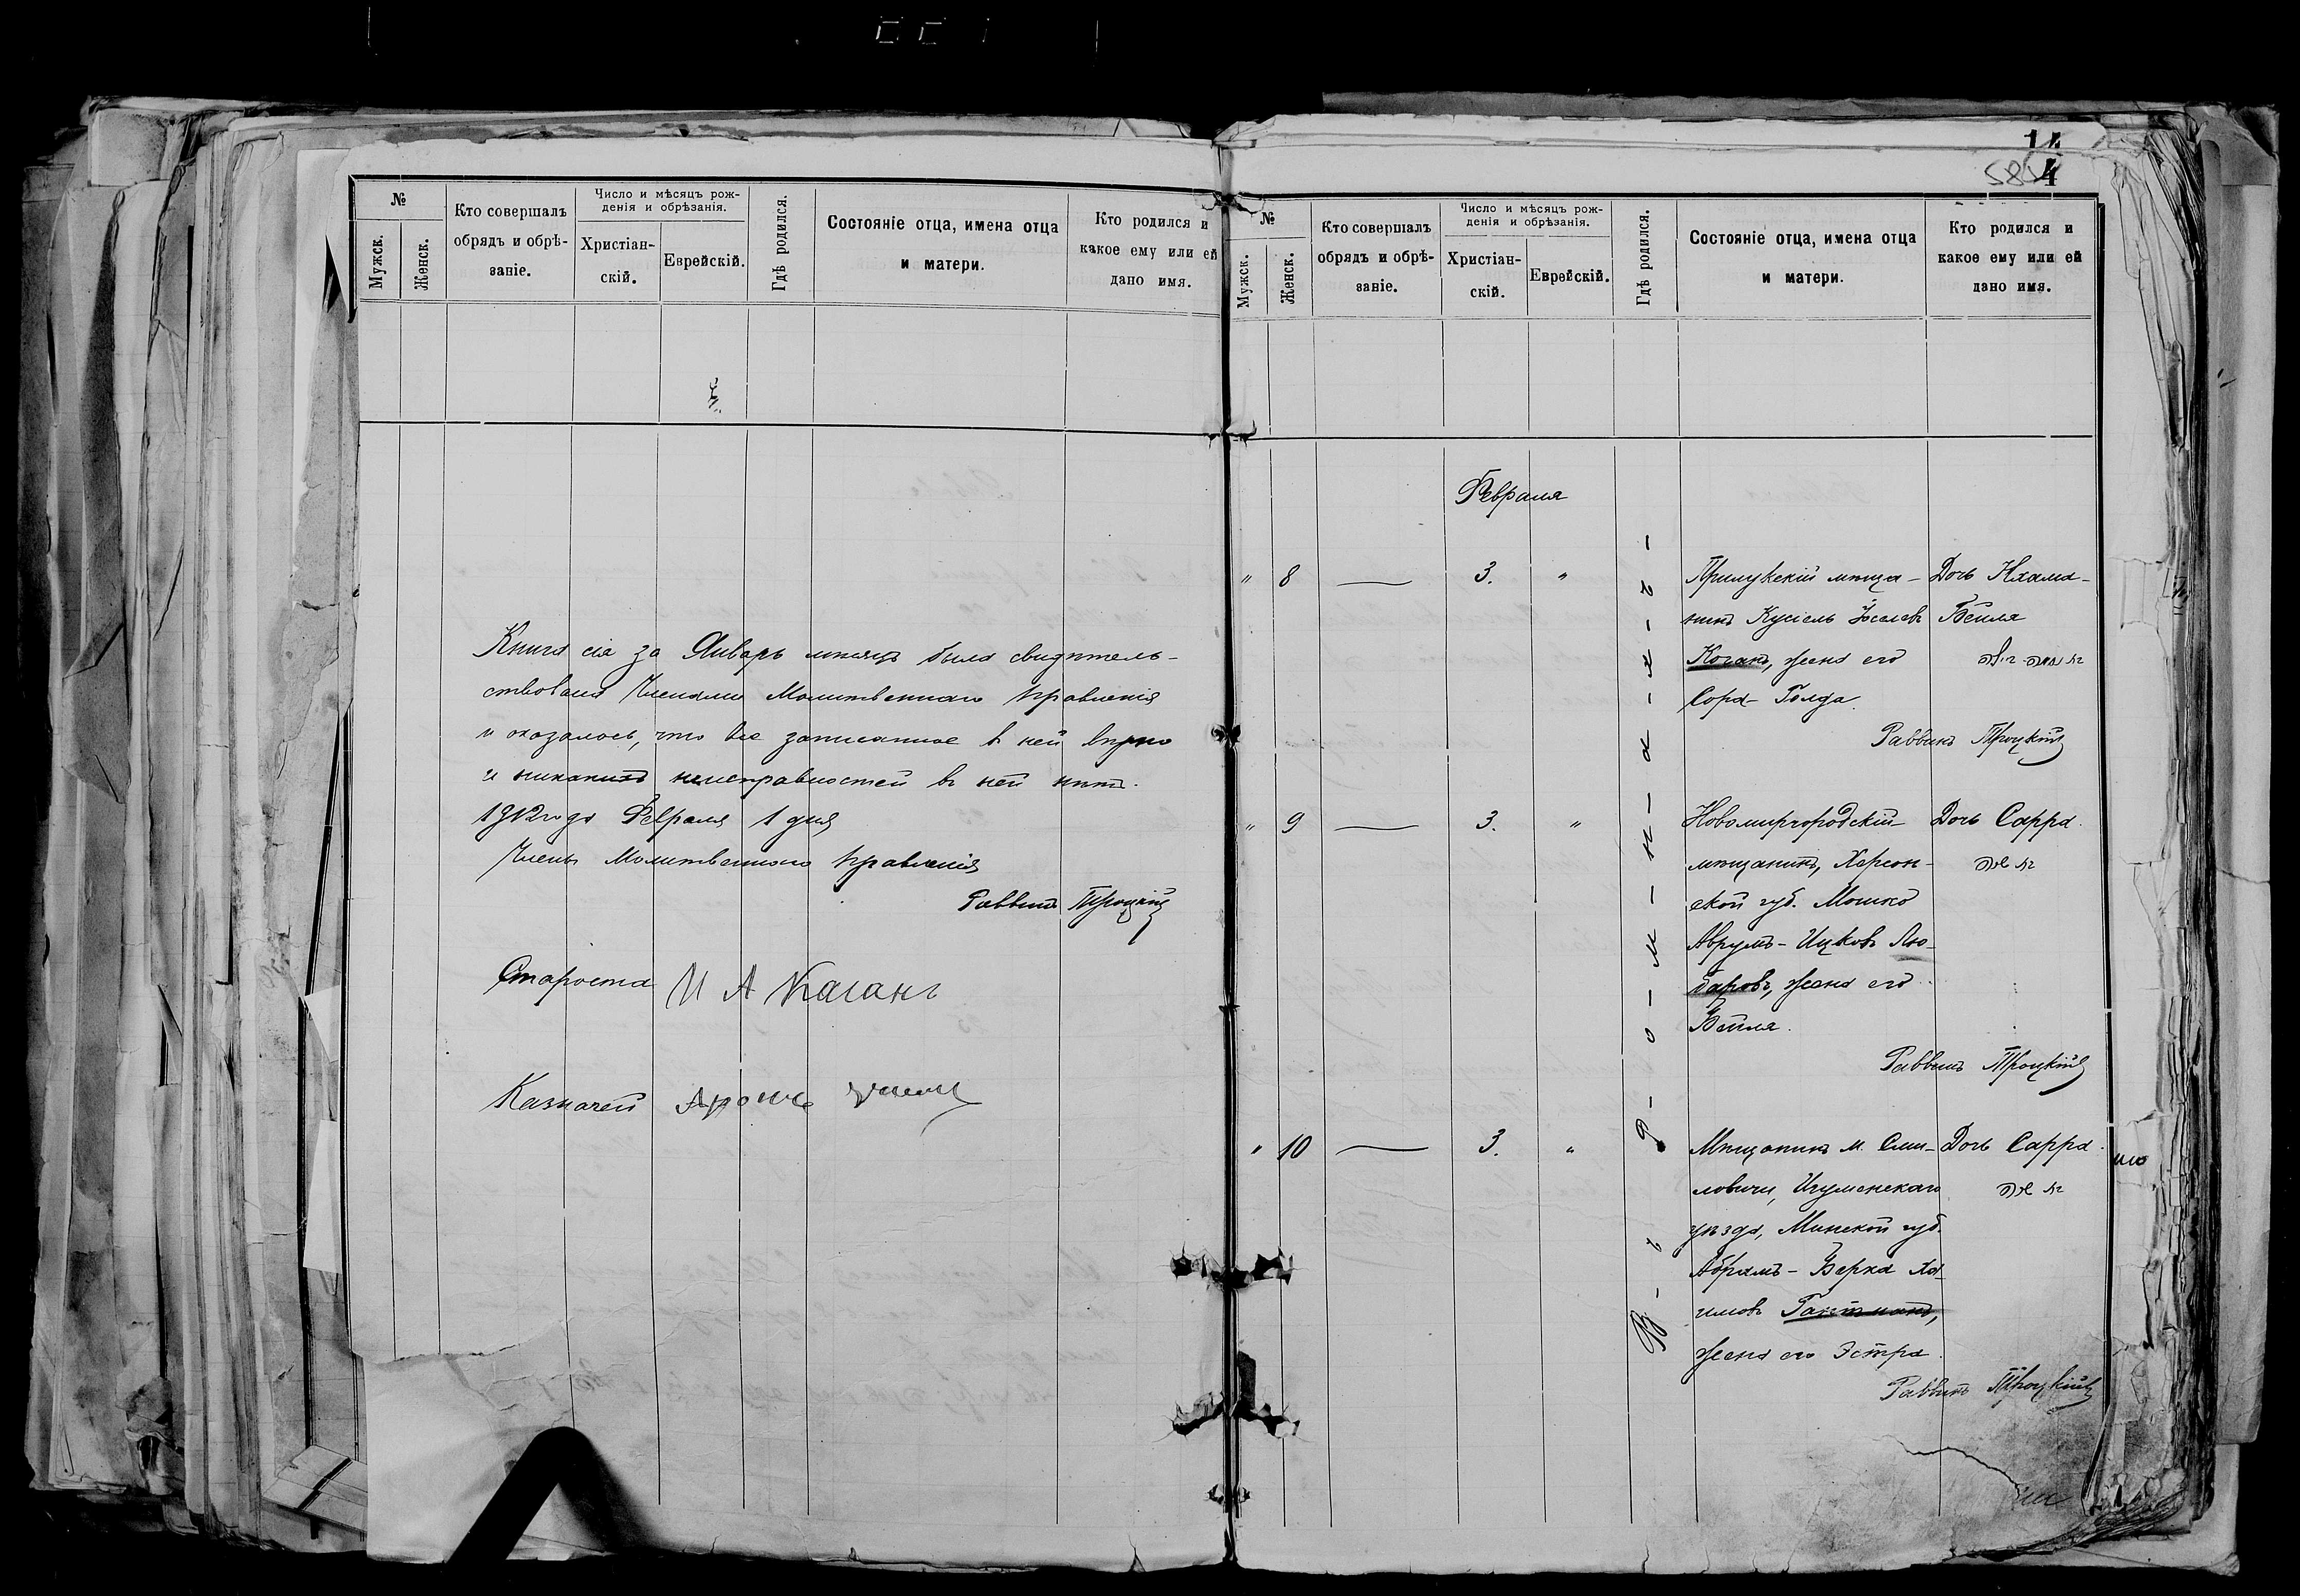 №
Мужск.
Женск.
Кто совершалъ
обрядъ и обрѣ-
заніе.
Число и мѣсяцъ рож-
денія и обрѣзанія.
Христіан-
скій.
Еврейскій.
Гдѣ родился.
Состояніе отца, имена отца
и матери.
Кто родился и
какое ему или ей
дано имя.
Книга сія за Январь мѣсяцъ была свидѣтель-
ствована Членами Молитвеннаго Правленія
и оказалось, что все записанное въ ней вѣрно
и никакихъ неисправностей въ ней нѣтъ.
1912 года Февраля 1 дня
Члены Молитвеннаго Правленія
Раввинъ Троцкій
Староста И А Каганъ
Казначей Аронъ
14
4
585
№
Мужск.
Женск.
Кто совершалъ
обрядъ и обрѣ-
заніе.
Число и мѣсяцъ рож-
денія и обрѣзанія.
Христіан-
скій.
Еврейскій.
Гдѣ родился.
Состояніе отца, имена отца
и матери.
Кто родился и
какое ему или ей
дано имя.
Февраля
В-ъ Р-о-м-н-а-х-ъ-
" 8 — 3. " Прилукскій мѣща- Дочь Нхама-
нинъ Кусіель Іоселевъ Бейля
Коганъ, жена его
Сора-Голда.
Раввинъ Троцкій
" 9 — 3. " Новомиргородскій Дочь Сарра.
мѣщанинъ, Херсон-
ской губ. Мошко
Аврумъ-Ицковъ Лю-
баровъ, жена его
Бейля.
Раввинъ Троцкій
" 10 — 3. " Мѣщанинъ м. Сми- Дочь Сарра.
ловичи, Игуменскаго
уѣзда, Минской губ.
Абрамъ-Берка Ха-
имовъ Гантманъ,
жена его Эстра.
Раввинъ Троцкій